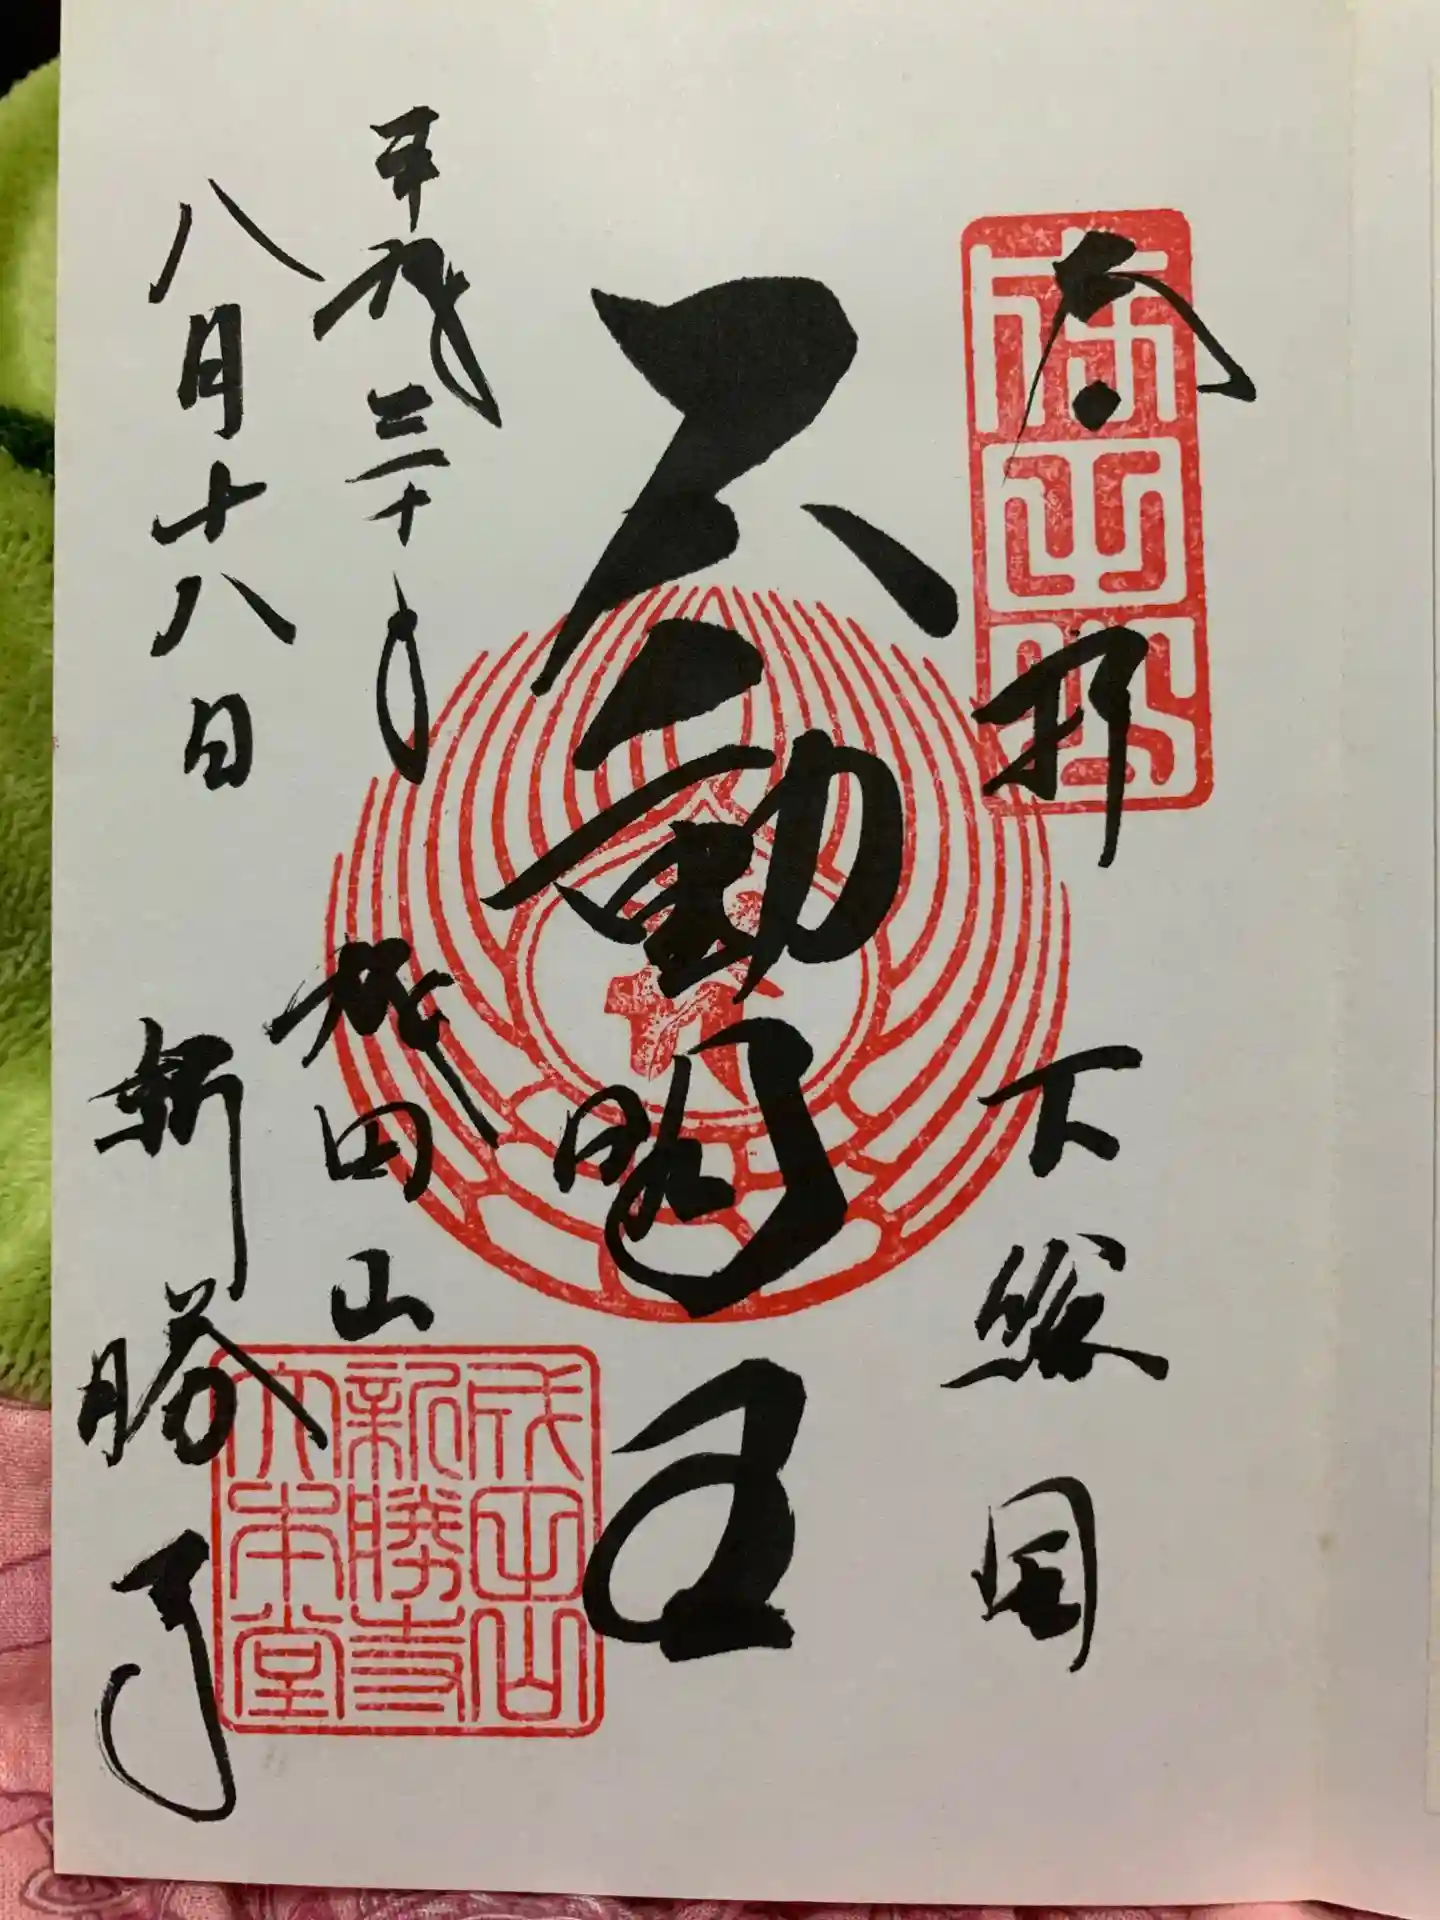 奉拝 下総国
不動明王
平成三十年 成田山
八月十八日 新勝寺
成田山
新勝寺
大本堂